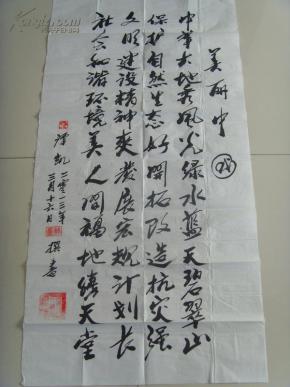 美丽中国
中华大地秀风光绿水蓝天碧翠山
保护自然生态好开拓改造抗灾强
文明建设精神爽发展宏规计划长
社会和谐环境美人间福地绣天堂
汉凯二零一三年
三月十六日
撰书